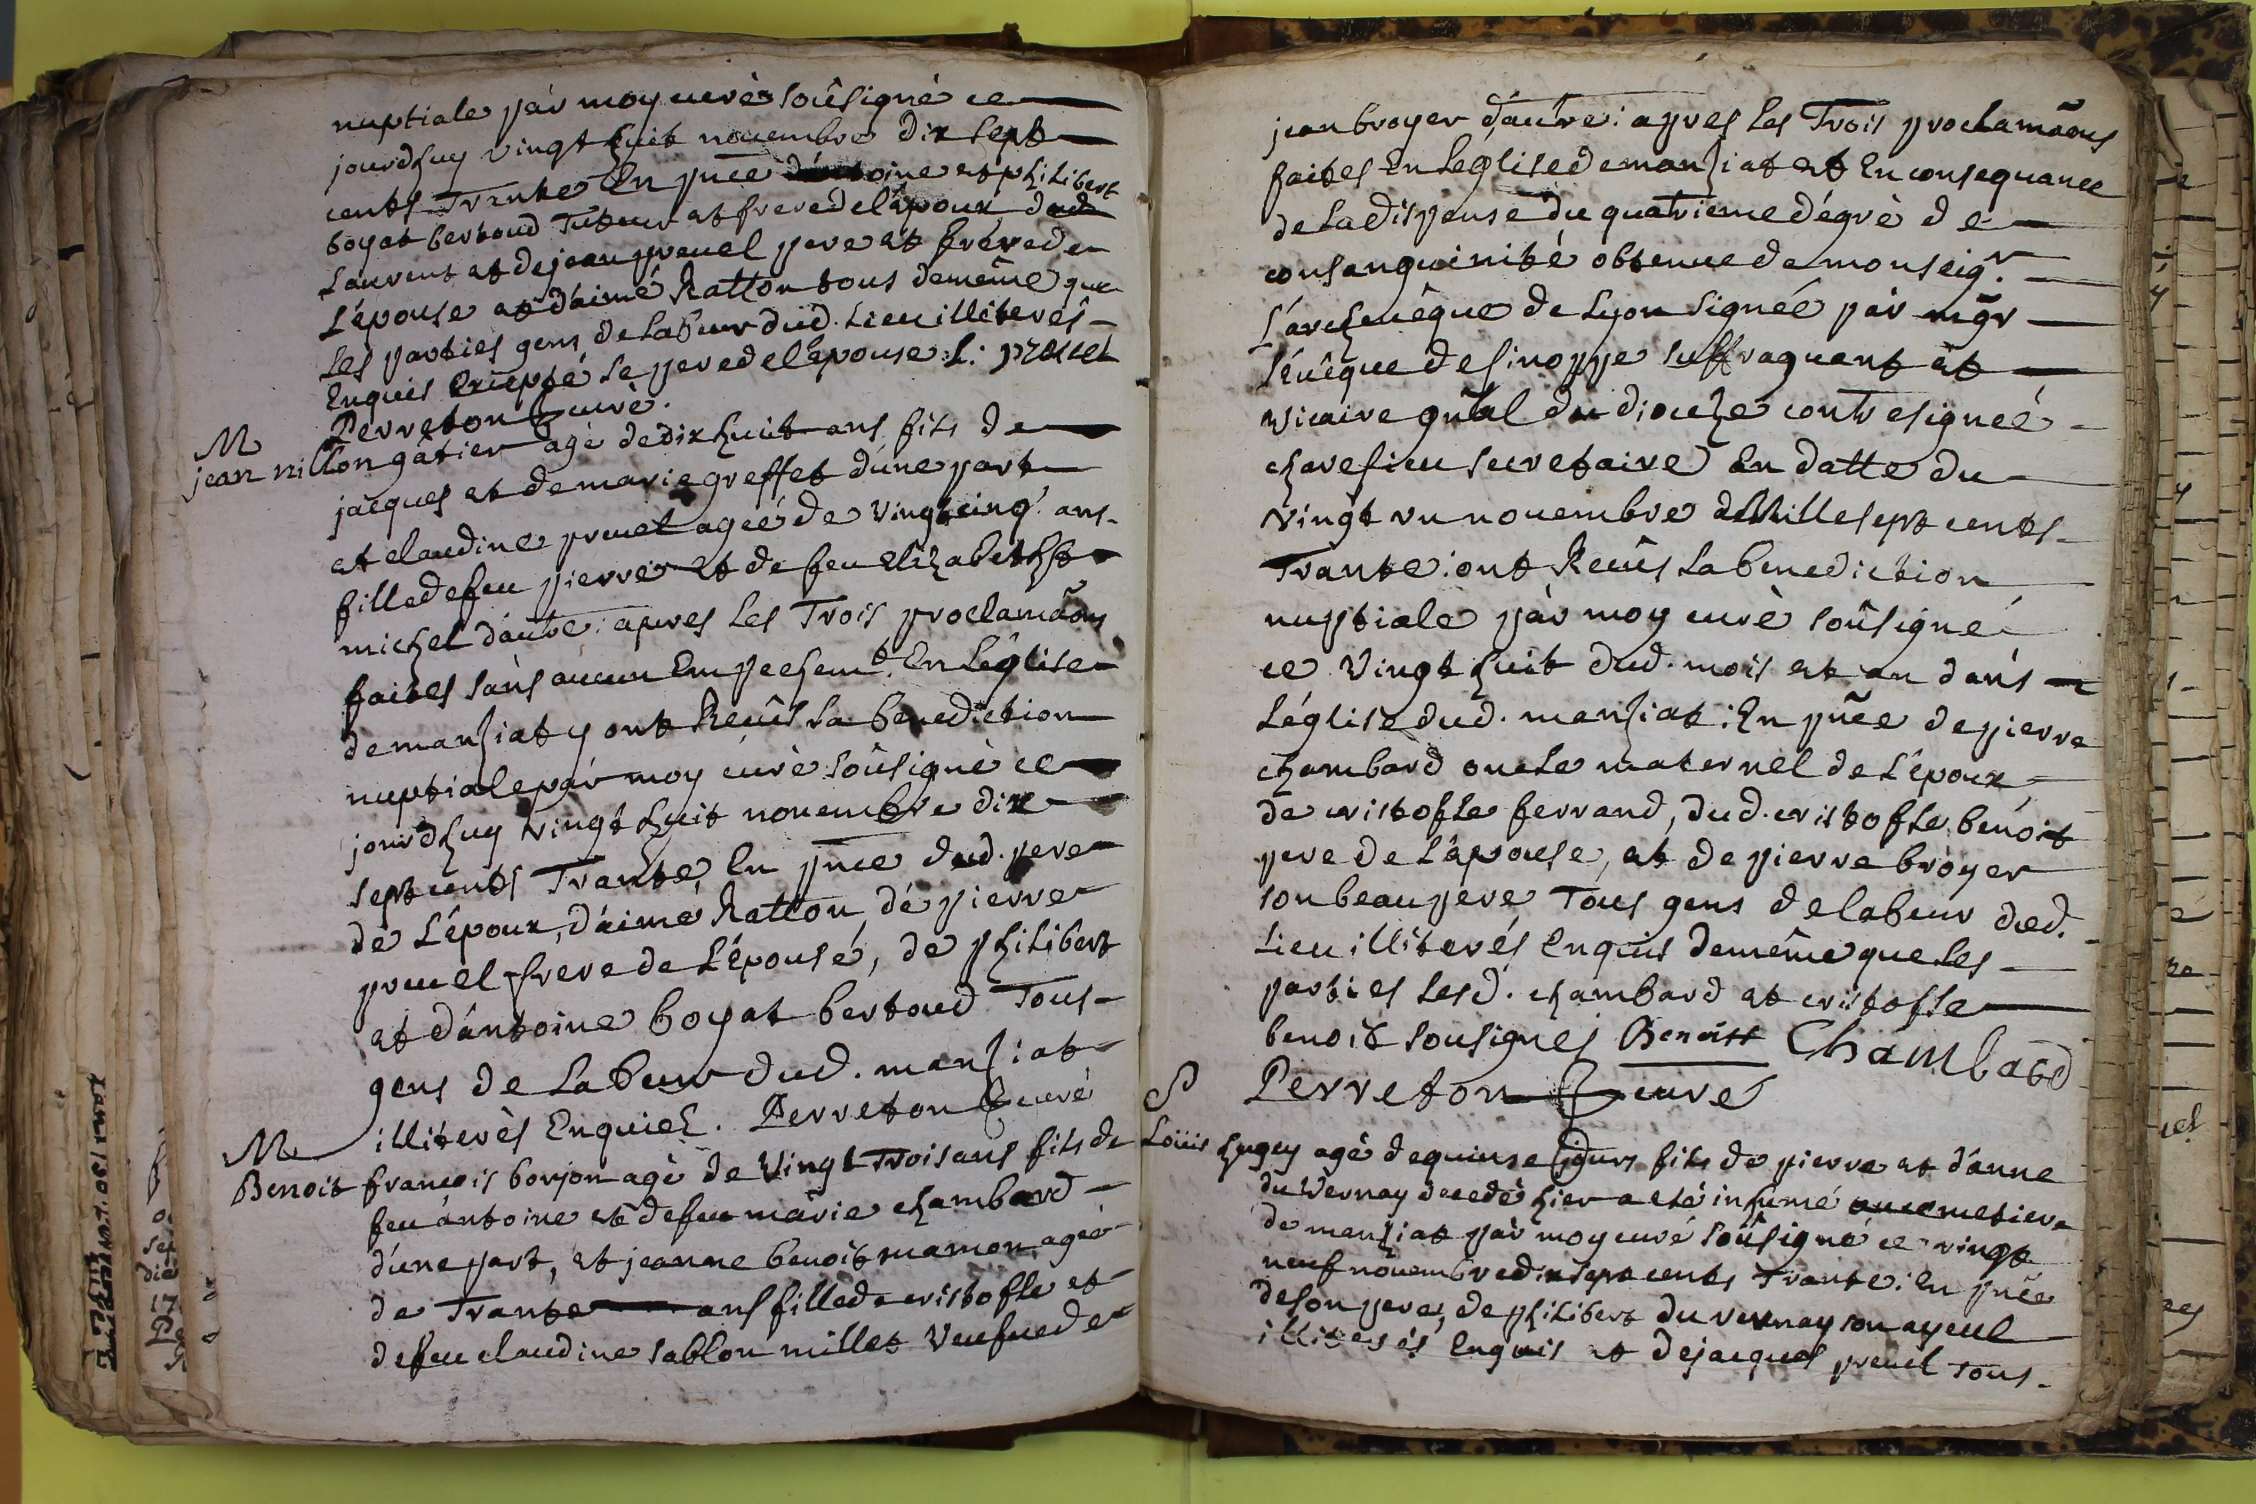 nuptiale pár moy curè soûsigné ce
jourdhuy vingt huit nouembre dix sept
cents Trante En pñce d'antoine et philibert
boyat bertoud Tuteur et frere de l'époux dud
Laurent et de jean preuel pere et frere de
L'épouse et d'aimé Ratton tous demême que
les parties gens de labeur dud. Lieu illiterés
Enquis Excepté le pere de l'épouse L: preuel
Perreton curè.
M
jean nillon gâtier agè de dix huit ans fils de
jacques et de marie greffet d'une part
et claudine preuel ageé de vingt cinq ans
fille de feu pierre et de feu elizabeth
michel d'autre: apres les Trois proclamãons
faites sans aucun Empechemt. En L'église
de manziat y ont Reçûs la benediction
nuptiale pár moy curè soûsigné ce
jourdhuy vingt huit nouembre dix
sept cents Trante En pñce dud. pere
de L'épour, d'aimé Ratton, de pierre
preuel frere de L'épouse, de philibert
et d'antoine boyat bertoud Tous
gens de labeur dud. manziat
illiterès Enquiez. Perreton curé
M
Benoit françois bonjon agè de vingt Trois ans fils de
feu antoine et de feu màrie chambard
d'une part, et jeanne benoit mamon ageé
de Trante ans fille de cristofle et
de feu claudine sablon millet Veufue de
jean broyer d'autre: apres les Trois proclamãons
faites En L'église de manziat et En consequance
de la dispense du quatrieme d'égrè de
consanguinité obtenue de monseigr.
L'archeuêque de Lyon signée pár mgr
L'éuêque de sinoppe suffraguant et
vicaire gñal du dioceze contresigneé
chavesieu secretaire En datte du
vingt un nouembre Mille sept cents
Trante: ont Reçûs la benediction
nuptiale pár moy curè soûsigné
ce Vingt huit dud. mois et an dans
L'église dud. manziat: En pñce de pierre
chambard oncle maternel de L'époux
de cristofle ferrand, dud. cristofle benoit
pere de L'épouse, et de pierre broyer
son beaupere Tous gens de labeur dud.
Lieu illiterés Enquis demême que les
parties lesd. chambard et cristofle
benoit sousignes Benoist Chambard
Perreton curé
S
Loüis hugey agè de quinse jours fils de pierre et d'anne
du Vernay decedè hier a eté inhumé au cemetiere
de manziat pár moy curé soûsigné ce vingt
neuf nouembre dix sept cents Trante: En pñce
de son pere, de philibert du vernay son ayeul
illiterés Enquis et de jacques preuel Tous